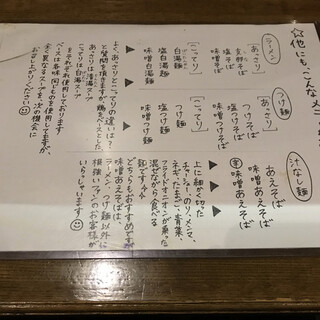 ☆他にも、こんなメニ
ラーメン
あっさり
京都そば
塩そば
味噌そば
こってり
白湯麺
塩白湯麺
味噌白湯麺
つけ麺
あっさり
つけそば
塩つけそば
味噌つけそば
こってり
つけ麺
塩つけ麺
味噌つけ麺
汁なし麺
あえそば
味噌あえそば
辛味噌あえそば
上に細かく切った
チャーシュー、のり、メンマ、
ネギ、たまご、青菜、
フライドオニオンが乗った
混ぜながら食べる
麺です
どちらもおすすめですが
味噌あえそばは、
ラーメン、つけ麺以外に
根強いファンのお客様が
いらっしゃいます
よく、あっさりとこってりの違いは?
と質問を頂きますが、鶏をベースとした、
あっさりは清湯スープ
こってりは白湯スープ
をそれぞれ使用しております
ベースは 同じものを使用してますが、
全く異なるスープを、次の機会に
お召し上がりください!